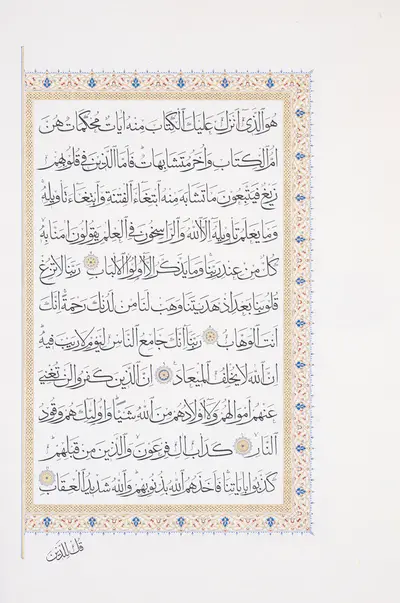 هُوَ الَّذِي أَنزَلَ عَلَيْكَ الْكِتَابَ مِنْهُ آيَاتٌ مُحْكَمَاتٌ هُنَّ
أُمُّ الْكِتَابِ وَأُخَرُ مُتَشَابِهَاتٌ فَأَمَّا الَّذِينَ فِي قُلُوبِهِمْ
زَيْغٌ فَيَتَّبِعُونَ مَا تَشَابَهَ مِنْهُ ابْتِغَاءَ الْفِتْنَةِ وَابْتِغَاءَ تَأْوِيلِهِ
وَمَا يَعْلَمُ تَأْوِيلَهُ إِلَّا اللَّهُ وَالرَّاسِخُونَ فِي الْعِلْمِ يَقُولُونَ آمَنَّا بِهِ
كُلٌّ مِنْ عِنْدِ رَبِّنَا وَمَا يَذَّكَّرُ إِلَّا أُولُو الْأَلْبَابِ رَبَّنَا لَا تُزِغْ
قُلُوبَنَا بَعْدَ إِذْ هَدَيْتَنَا وَهَبْ لَنَا مِنْ لَدُنْكَ رَحْمَةً إِنَّكَ
أَنْتَ الْوَهَّابُ رَبَّنَا إِنَّكَ جَامِعُ النَّاسِ لِيَوْمٍ لَا رَيْبَ فِيهِ
إِنَّ اللَّهَ لَا يُخْلِفُ الْمِيعَادَ إِنَّ الَّذِينَ كَفَرُوا لَنْ تُغْنِيَ
عَنْهُمْ أَمْوَالُهُمْ وَلَا أَوْلَادُهُمْ مِنَ اللَّهِ شَيْئًا وَأُولَٰئِكَ هُمْ وَقُودُ
النَّارِ كَدَأْبِ آلِ فِرْعَوْنَ وَالَّذِينَ مِنْ قَبْلِهِمْ
كَذَّبُوا بِآيَاتِنَا فَأَخَذَهُمُ اللَّهُ بِذُنُوبِهِمْ وَاللَّهُ شَدِيدُ الْعِقَابِ
قُلْ لِلَّذِينَ